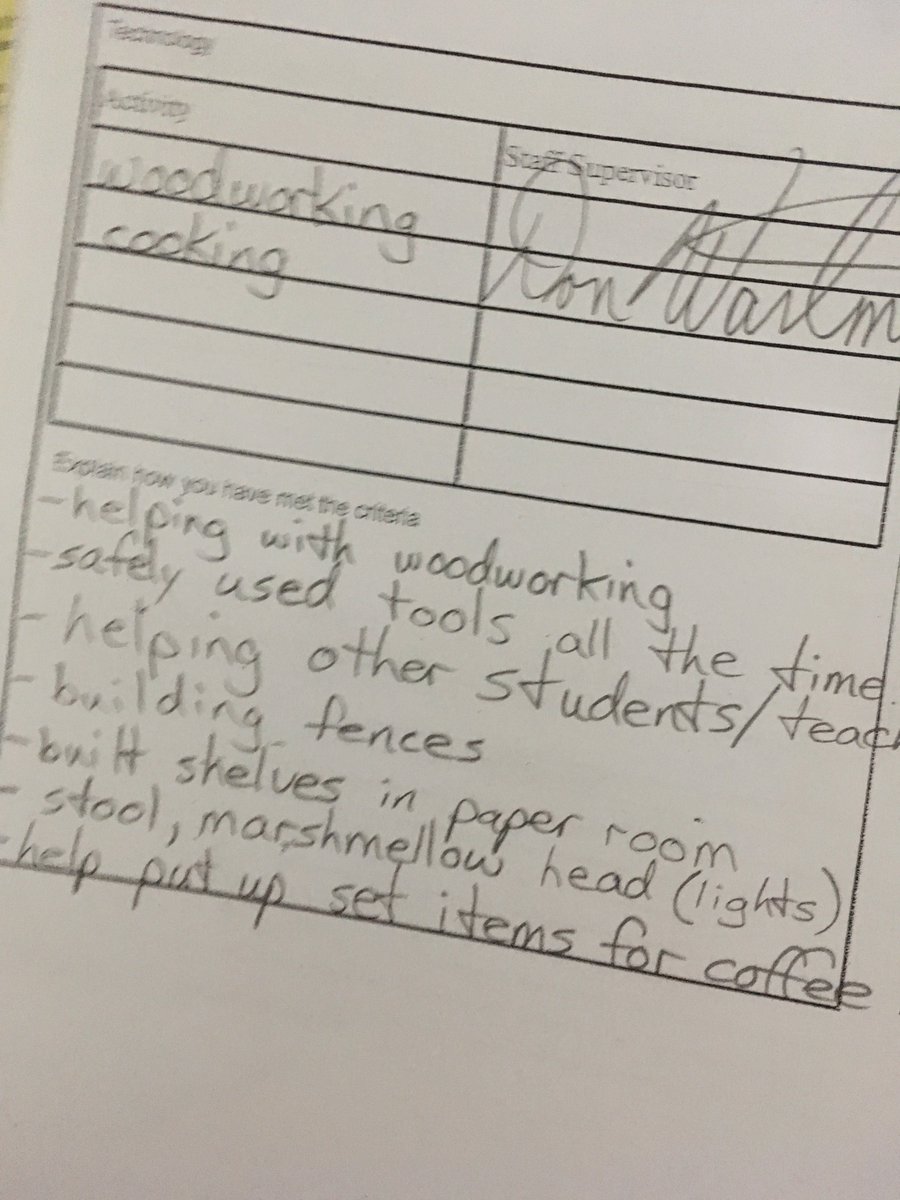 Technology
Activity
Staff Supervisor
woodworking
cooking
Don
Explain how you have met the criteria
- helping with woodworking
- safely used tools all the time
- helping other students/teach
- building fences
- built shelves in paper room
- stool, marshmellow head (lights)
- help put up set items for coffee